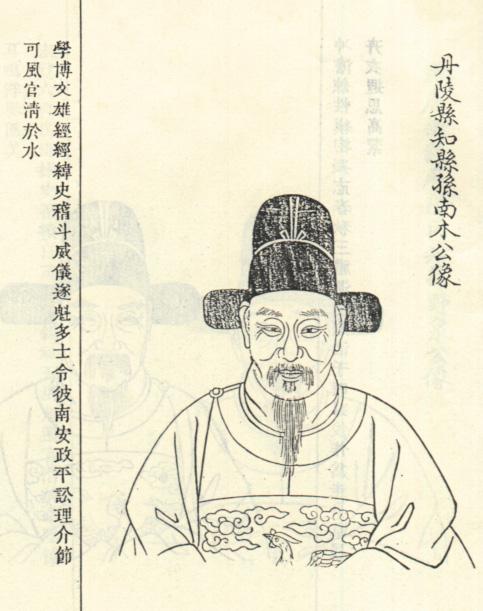 丹陵縣知縣孫南木公像
學博文雄經經緯史稽斗威儀遂魁多士令彼南安政平訟理介節
可風官清於水